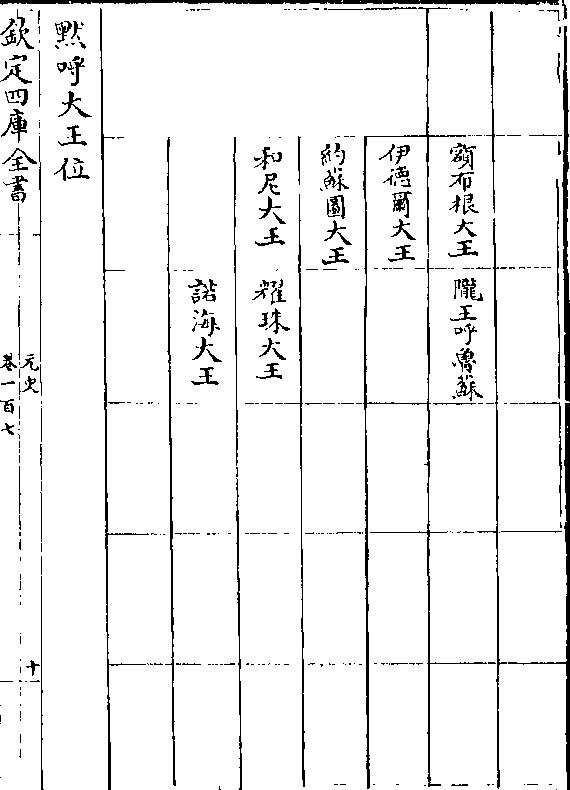 額布根大王 隴王呼魯蘇
伊德爾大王
約蘇圖大王
和尼大王 耀珠大王
諾海大王
黙呼大王位
欽定四庫全書
元史
卷一百七
十